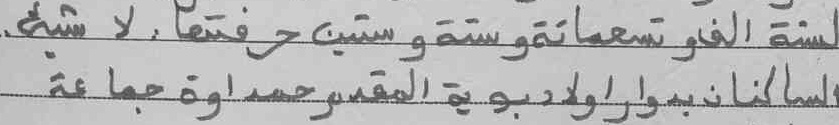 لسنة الف وتسعمائة وستة وستين حرفتها، لا شيئ.
الساكنان بدوار اولاد بوية المقدم حمداوة جماعة